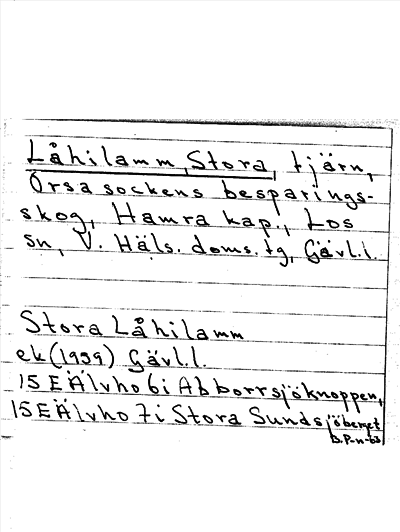 Låhilamm, Stora, tjärn,
Orsa sockens besparings-
skog, Hamra kap., Los
sn, V. Häls. doms.tg, Gävl.l.
Stora Låhilamm
ek (1959) Gävl.l.
15 E Älvho 6i Abborrsjöknoppen,
15 E Älvho 7i Stora Sundsjöberget